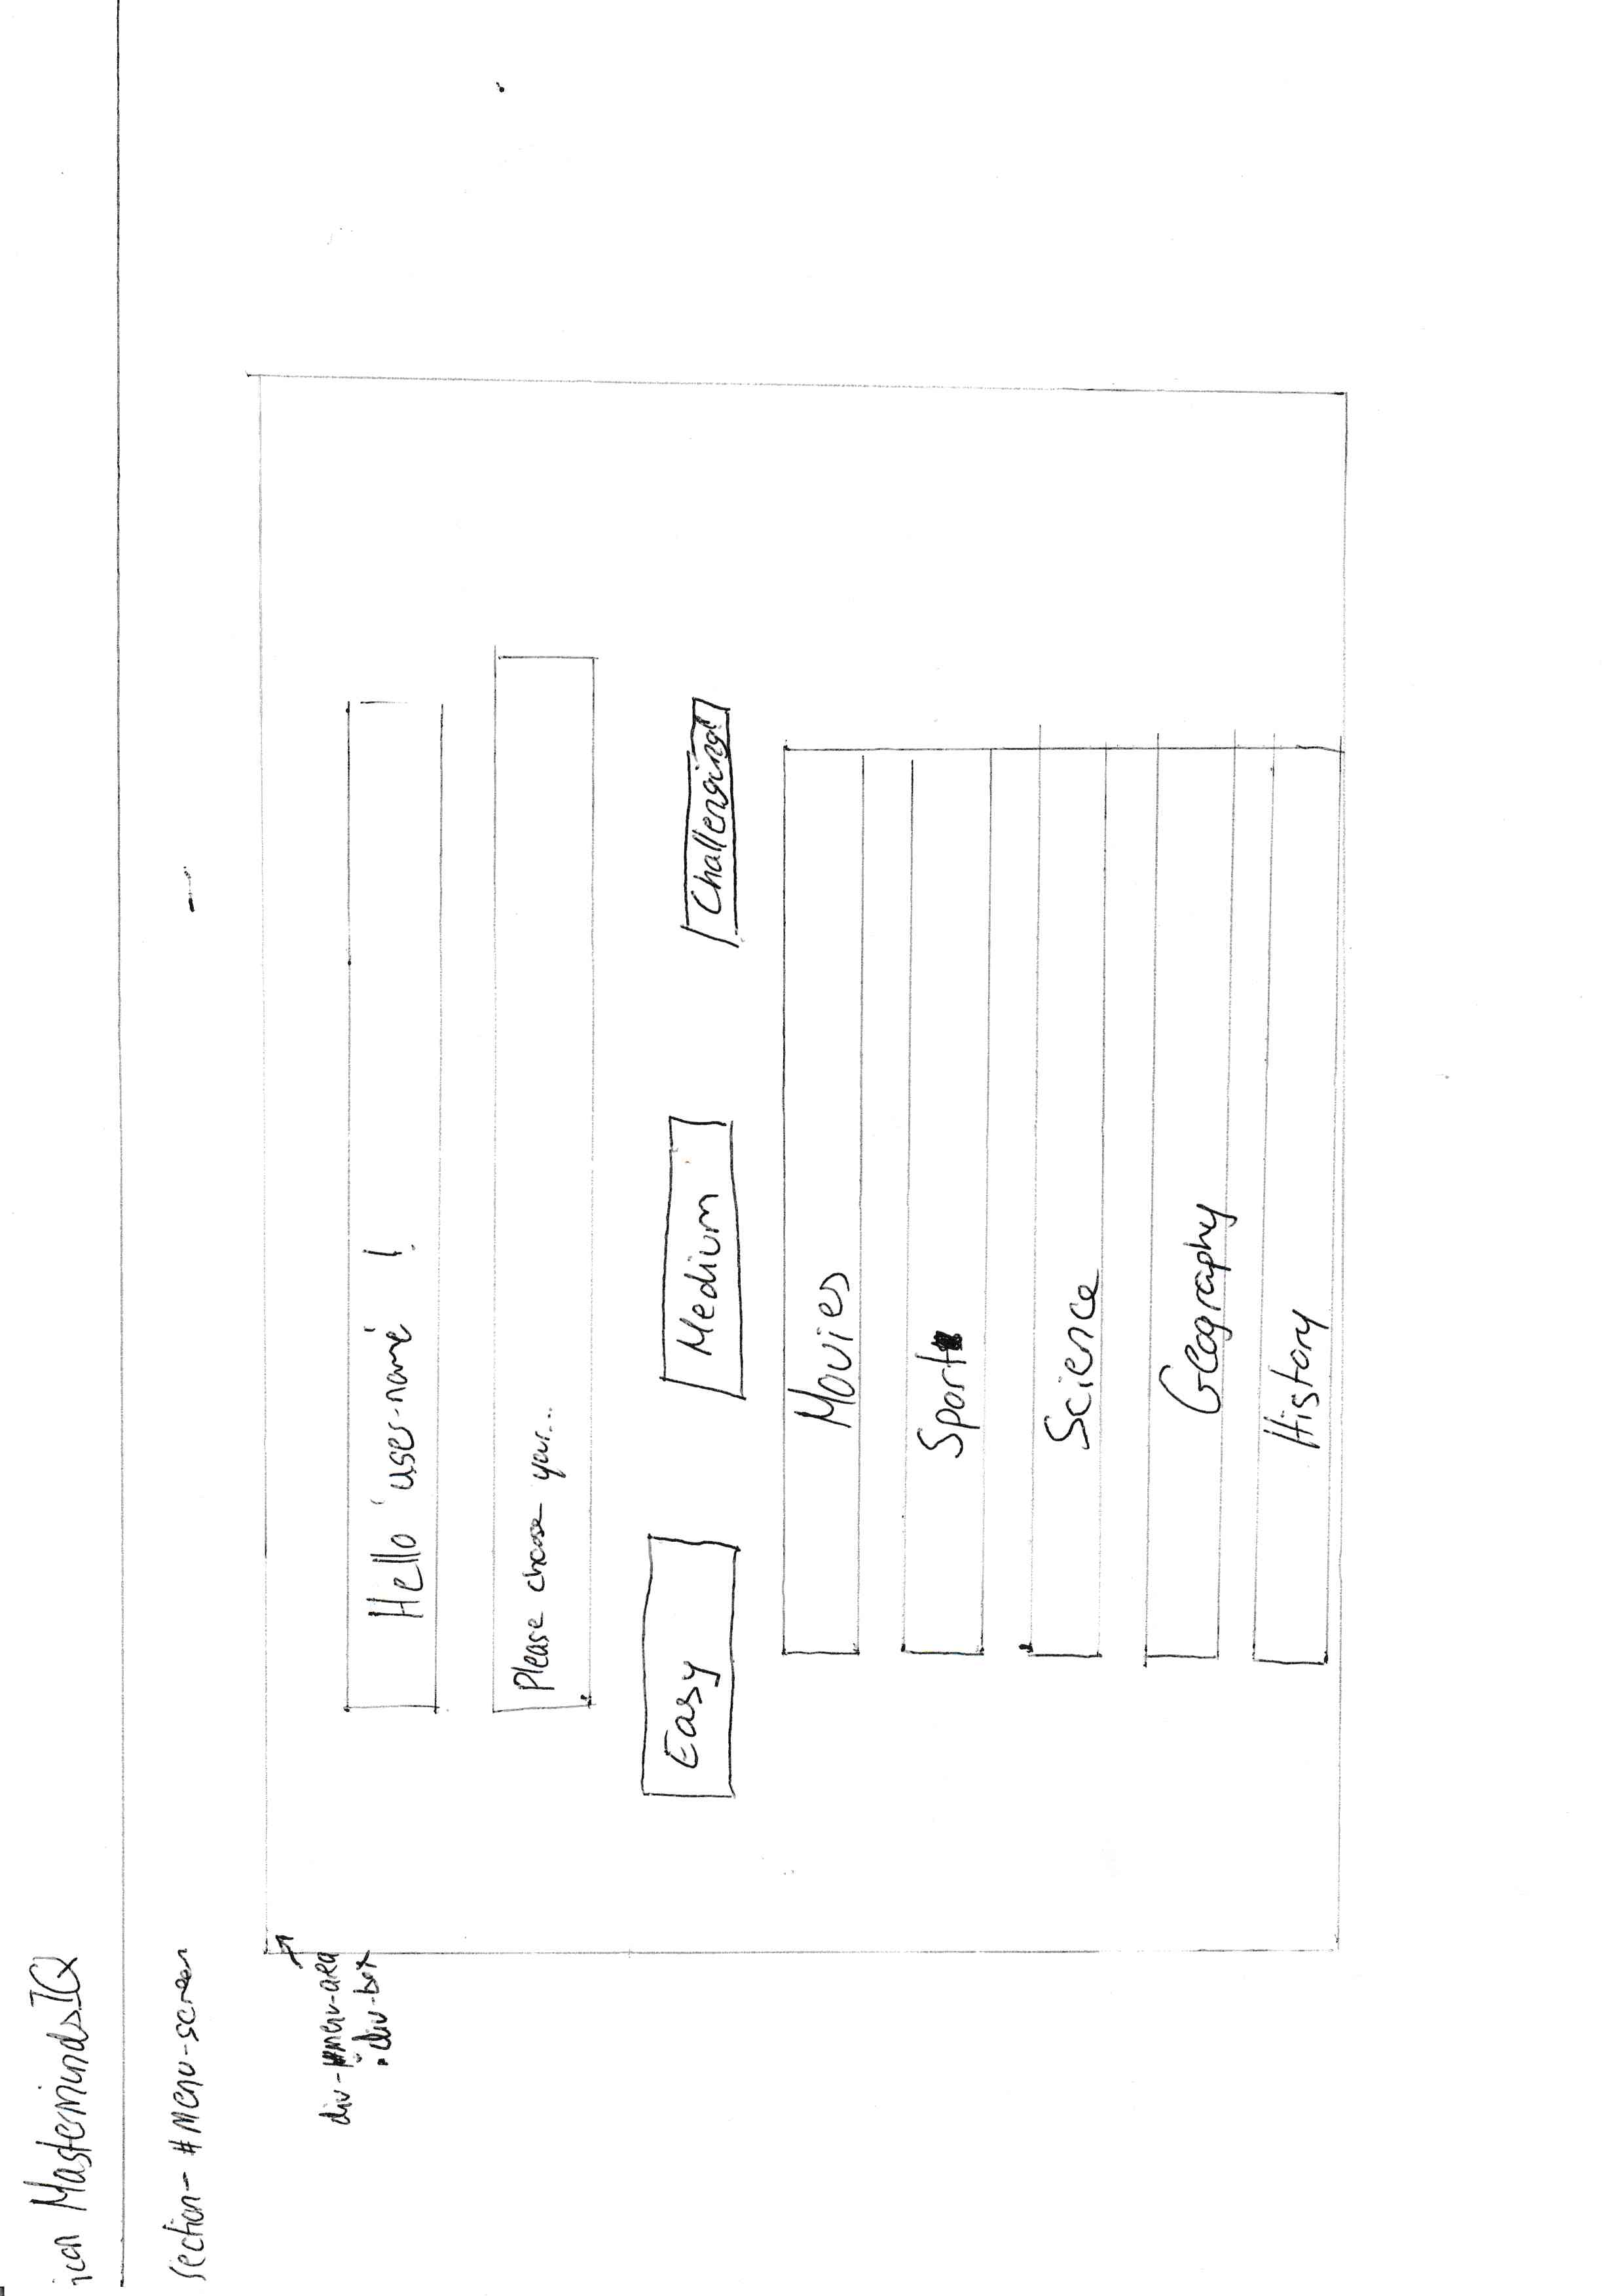 icon MastermindsIQ
section - #menu-screen
div - #menu-area
.div-box
Hello 'user-name' !
Please choose your...
Easy Medium Challenging
Movies
Sport
Science
Geography
History